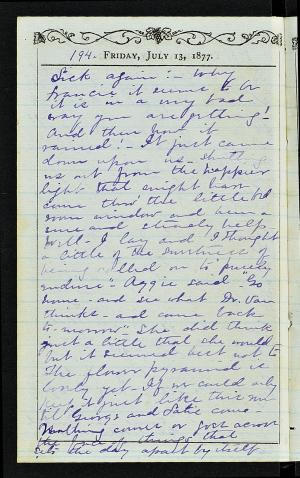 194. FRIDAY, JULY 13, 1877.
Sick again! - Why
Francie it seems to be
it is in a very bad
way you are getting!
And then how it
rained! - It just came
down upon us - shutting
us out from the happier
light that might have
come thro' the little bed
room window and been a
sure and steady help
I lay and I thought
a little of the
being called on to "purely
endure" Aggie said "Go
home - and see what Dr. Van
thinks - and come back
to-morrow" She did think
just a little that she would
but it seemed best not to
The flower pyramid is
lovely yet - If we could only
keep it just like this
til George and Sate come -
Nothing comes or goes across
the of things that
the day apart by itself